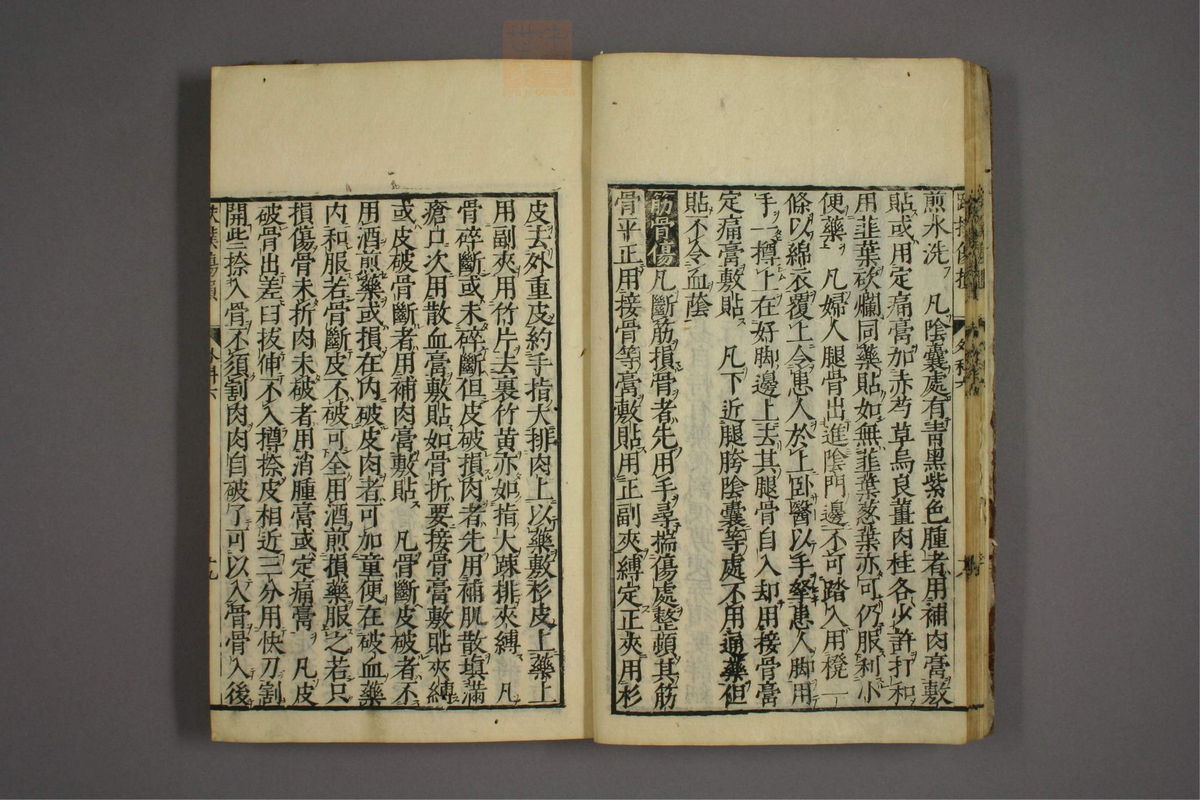 煎水洗　凡陰囊處有青黑紫色腫者用補肉膏敷
貼或用定痛膏加赤芍草烏良薑肉桂各少許打和
用韮葉砍爛同藥貼如無韮葉葱葉亦可仍服利小
便藥　凡婦人腿骨出進陰門邊不可踏入用櫈一
條以綿衣覆上令患人於上卧醫以手拏患人脚用
手一撙上在好脚邊上去其腿骨自入却用接骨膏
定痛膏敷貼　凡下近腿胯陰囊等處不用通藥但
貼不令血蔭
筋骨傷　凡斷筋損骨者先用手尋揣傷處整頓其筋
骨平正用接骨等膏敷貼用正副夾縛定正夾用杉
皮去外重皮約手指大排肉上以藥敷杉皮上藥上
用副夾用竹片去裏竹黃亦如指大踈排夾縛　凡
骨碎斷或未碎斷但皮破損肉者先用補肌散填滿
瘡口次用散血膏敷貼如骨折要接骨膏敷貼夾縛
或皮破骨斷者用補肉膏敷貼　凡骨斷皮破者不
用酒煎藥或損在內破皮肉者可加童便在破血藥
內和服若骨斷皮不破可全用酒煎損藥服之若只
損傷骨未折肉未破者用消腫膏或定痛膏　凡皮
破骨出差臼拔伸不入撙捺皮相近三分用快刀割
開些捺入骨不須割肉肉自破了可以入骨骨入後
外科六
十九